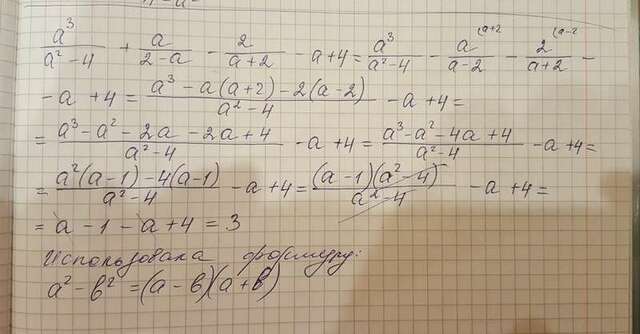 a³/(a²-4) + a/(2-a) - 2/(a+2) - a+4 = a³/(a²-4) - a^(a+2)/(a-2) - 2^(a-2)/(a+2) -
-a +4 = (a³-a(a+2)-2(a-2))/(a²-4) -a+4=
= (a³-a²-2a-2a+4)/(a²-4) -a+4= (a³-a²-4a+4)/(a²-4) -a+4=
= (a²(a-1)-4(a-1))/(a²-4) -a+4= ((a-1)(a²-4))/(a²-4) -a+4=
= a-1-a+4=3
Использовала формулу:
a²-в²=(a-в)(a+в)